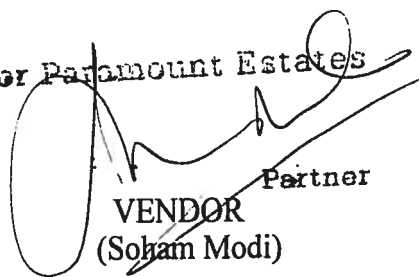 or Paramount Estates
Partner
VENDOR
(Soham Modi)